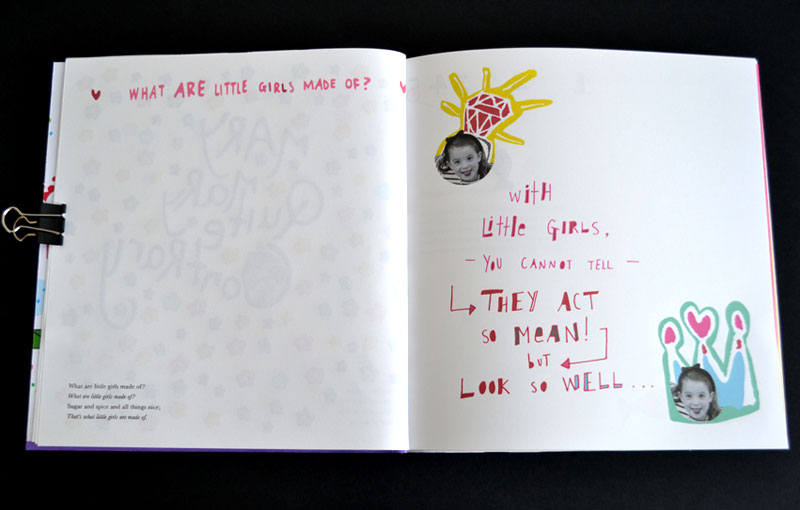 WHAT ARE LITTLE GIRLS MADE OF?
What are little girls made of?
What are little girls made of?
Sugar and spice and all things nice;
That's what little girls are made of.
with
Little GIRLS,
– YOU CANNOT TELL –
THEY ACT
SO MEAN!
but
LOOK SO WELL...